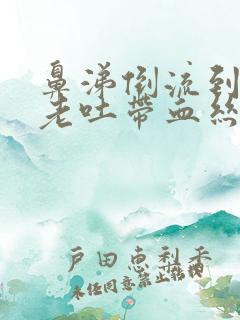 鼻涕倒流到
老吐带血丝
戸田恵梨香
未经同意禁止转载